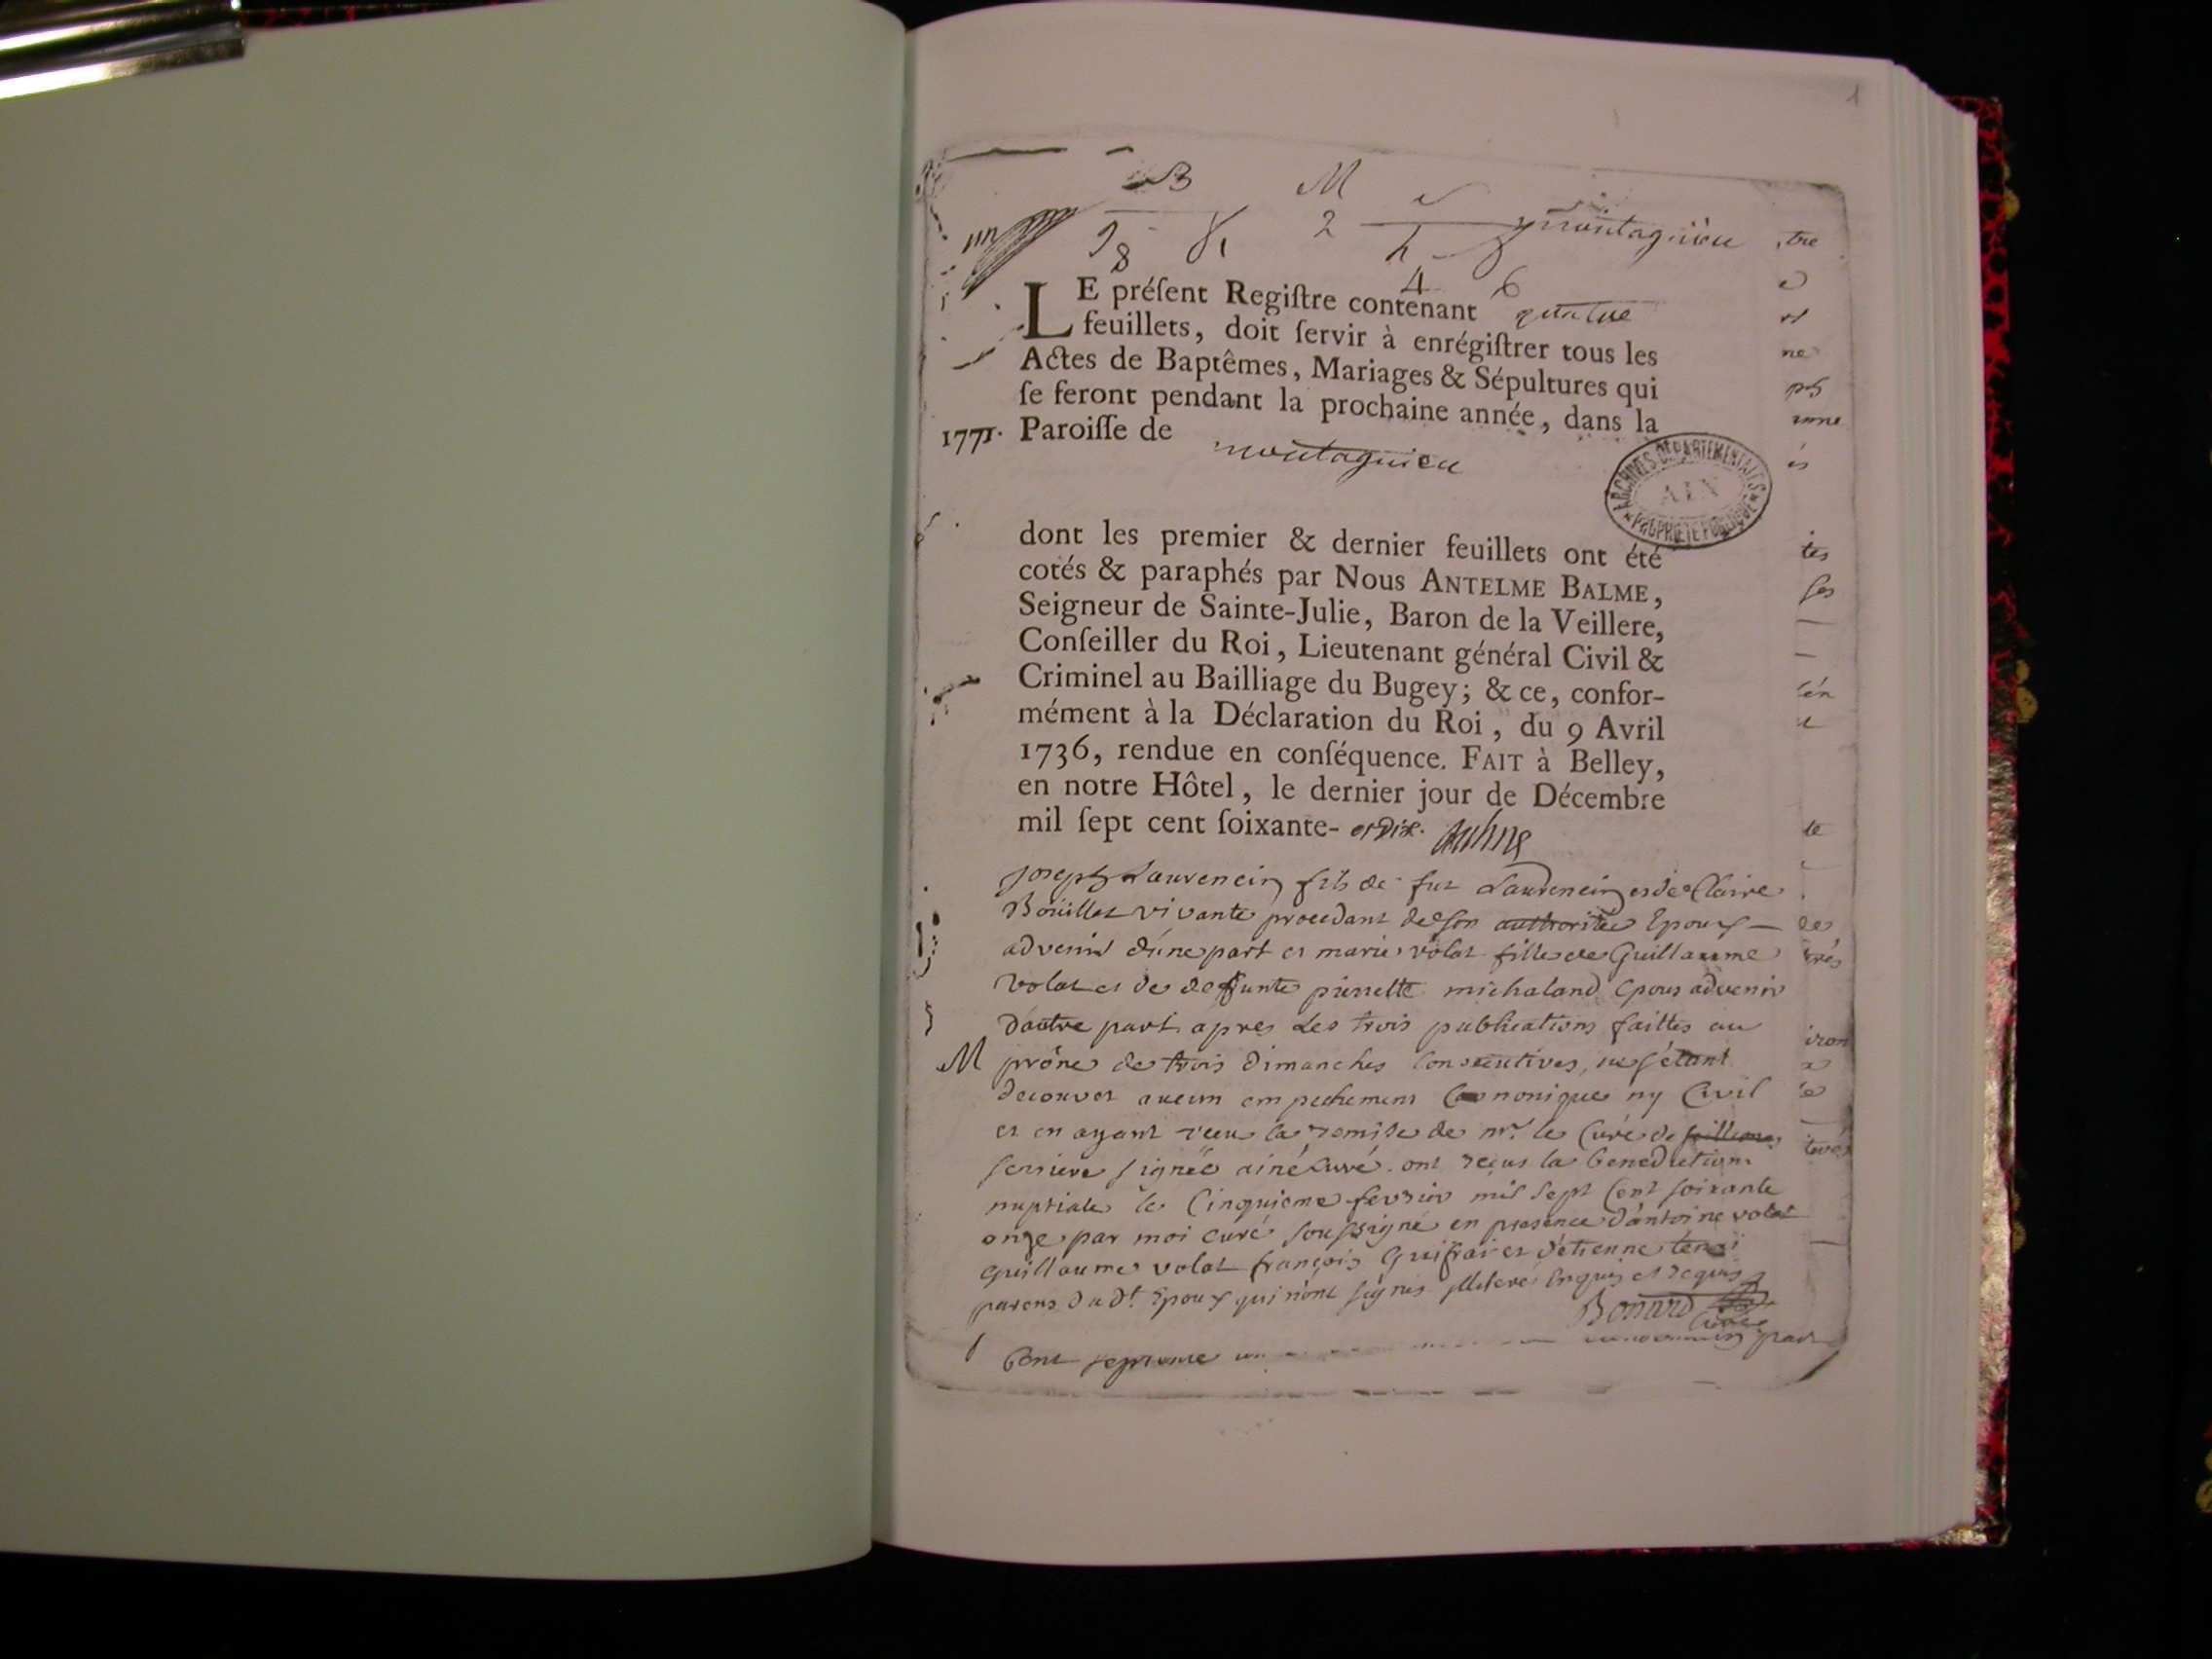 1
B M
montagnieu
2
8
4 6
LE préſent Regiſtre contenant quatre
feuillets, doit ſervir à enrégiſtrer tous les
Actes de Baptêmes, Mariages & Sépultures qui
ſe feront pendant la prochaine année, dans la
1771. Paroiſſe de montagnieu
ARCHIVES DÉPARTEMENTALES
AIN
PROPRIÉTÉ PUBLIQUE
dont les premier & dernier feuillets ont été
cotés & paraphés par Nous ANTELME BALME,
Seigneur de Sainte-Julie, Baron de la Veillere,
Conſeiller du Roi, Lieutenant général Civil &
Criminel au Bailliage du Bugey; & ce, confor-
mément à la Déclaration du Roi, du 9 Avril
1736, rendue en conſéquence. FAIT à Belley,
en notre Hôtel, le dernier jour de Décembre
mil ſept cent ſoixante- et Dix.
joseph Laurencin fils de fut Laurencin et de Claire
Boüillet vivante procedant de son authoritée Epoux
advenir d'une part et marie volat fille de Guillaume
volat et de deffunte pierrette michaland epous advenir
d'autre part apres Les trois publications faittes au
M prône de trois Dimanches Consecutives, ne s'étant
decouvert aucun empechement Canonique ny Civil
et en ayant receu la remise de mr. le Curé de
serriere signée ainé curé. ont reçus la benediction
nuptiale le Cinquieme fevrier mil sept Cent soixante
onze par moi curé soussigné en presence d'antoine volat
Guillaume volat françois Guifrai et d'etienne
parens du dt. Epoux qui n'ont signés illiterés Enquis et requis
Bonard Curé